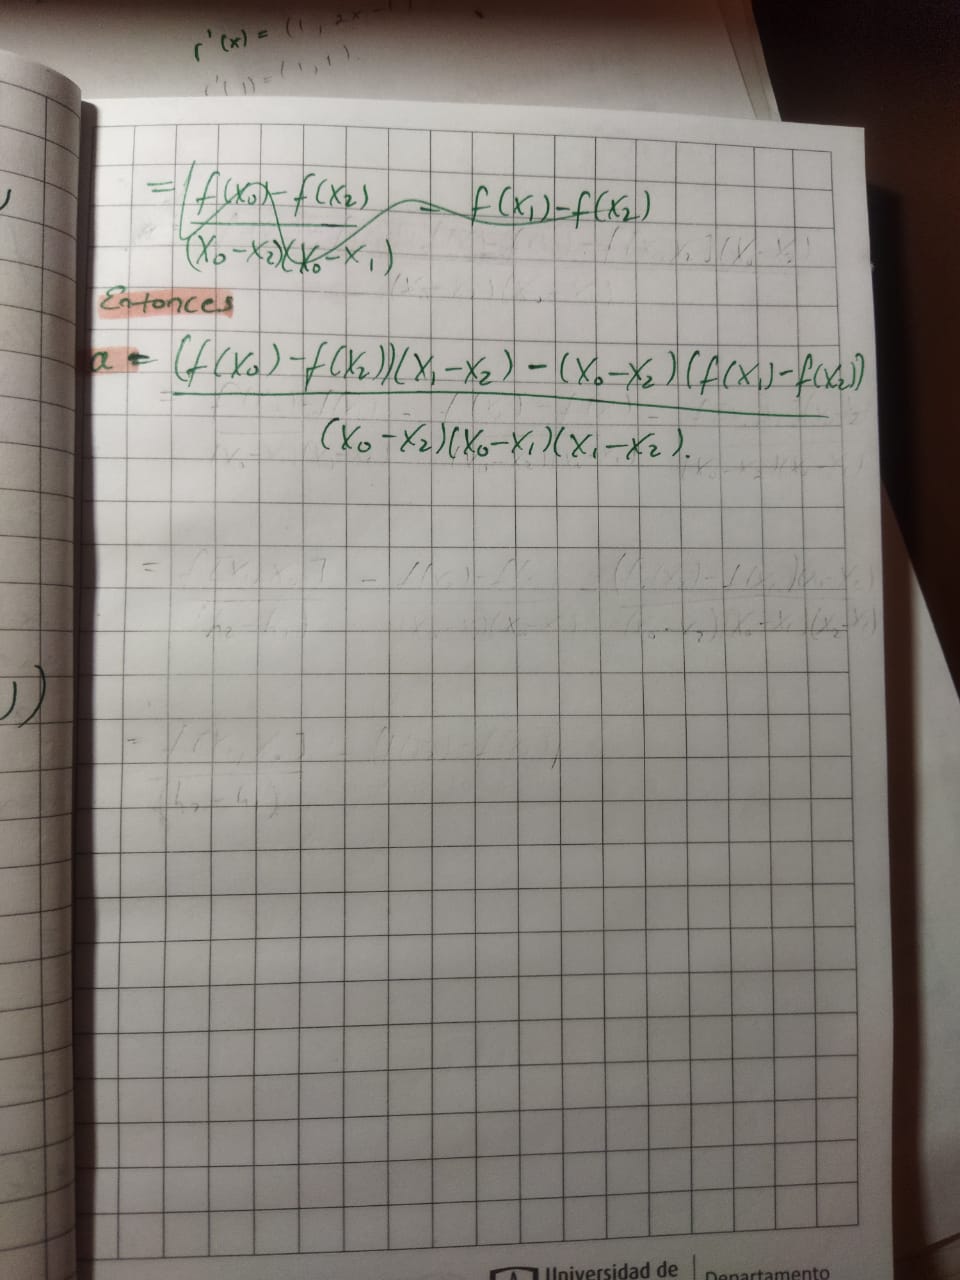 r'(x) = (1, 2x-1)
r'(1) = (1, 1)
= f(x₀) - f(x₂) / (x₀-x₂)(x₀-x₁) - f(x₁) - f(x₂)
Entonces
a = (f(x₀) - f(x₂))(x₁-x₂) - (x₀-x₂)(f(x₁)-f(x₂))
(x₀-x₂)(x₀-x₁)(x₁-x₂).
Universidad de
Departamento